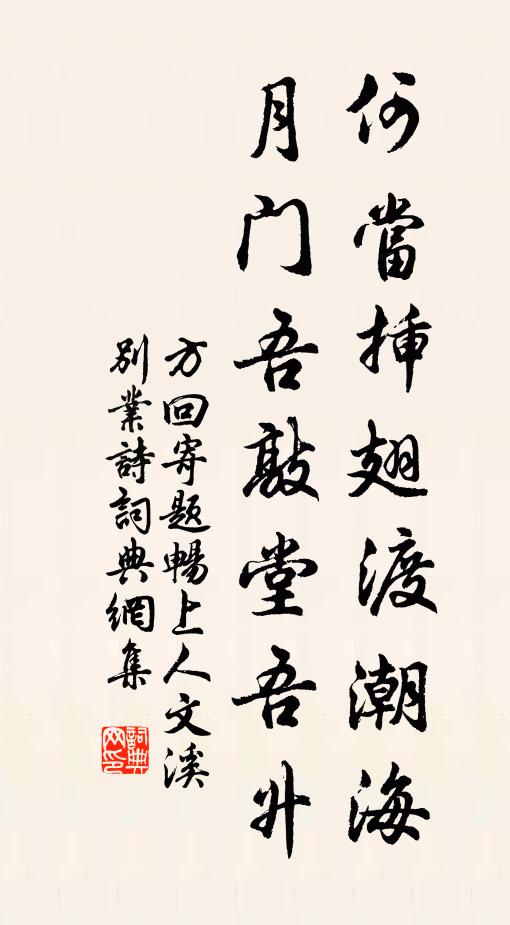 何當插翅渡潮海
月門吾敲堂吾升
方回寄題暢上人文溪
別業詩詞典網集
詞典網印